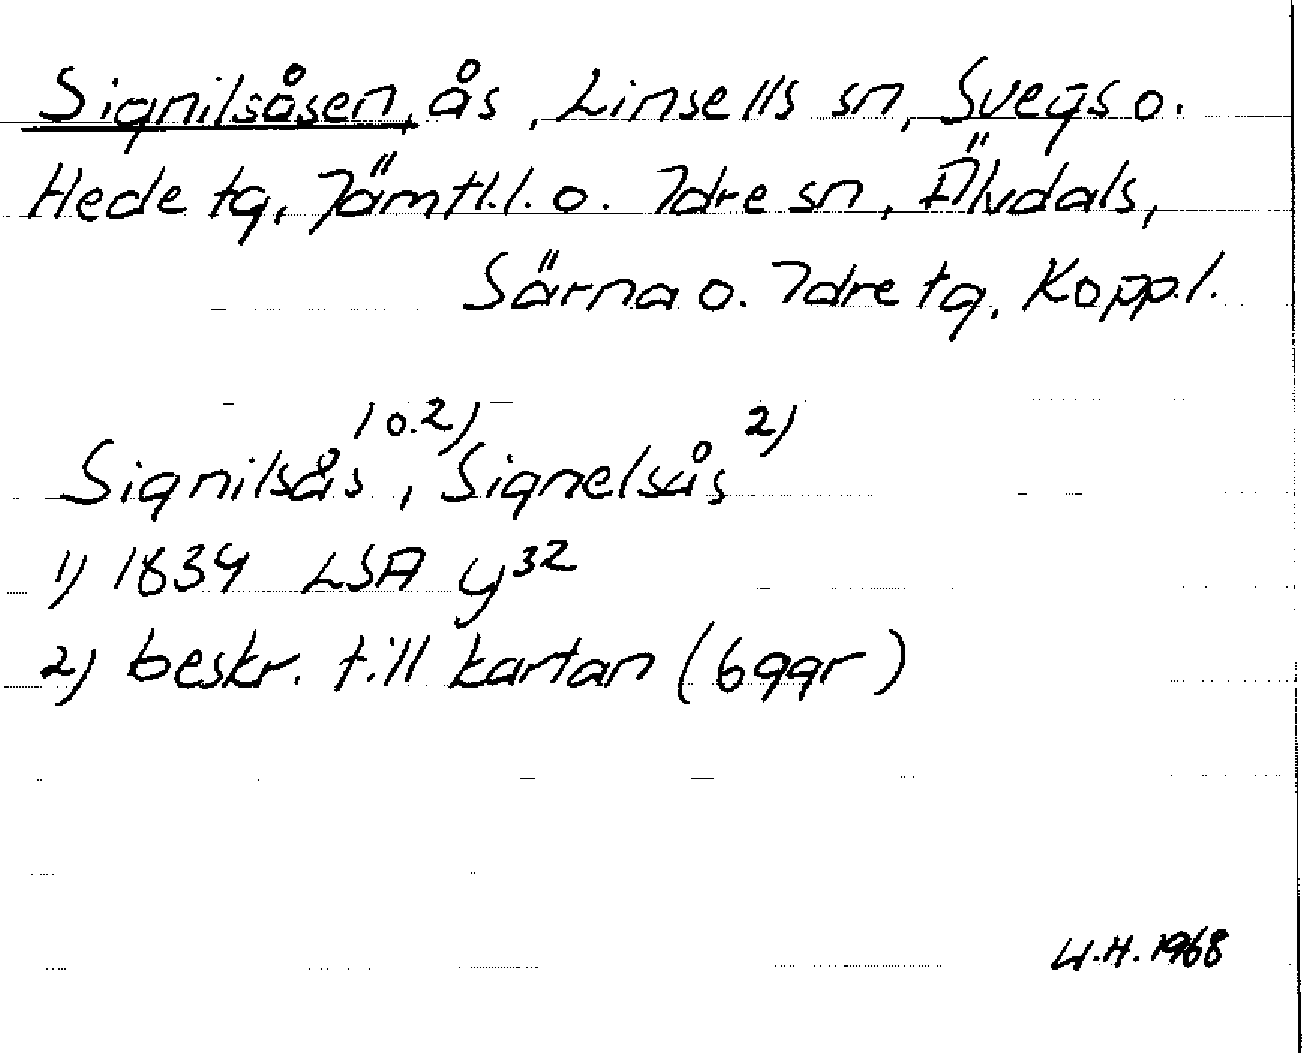 Signilsåsen, ås, Linsells sn, Svegs o.
Hede tg, Jämtl.l. o. Idre sn, Älvdals,
Särna o. Idre tg. Koppl.
Signilsås 1 o. 2), Signelsås 2)
1) 1834 LSA y32
2) beskr. till kartan (6 ggr)
U.H. 1968